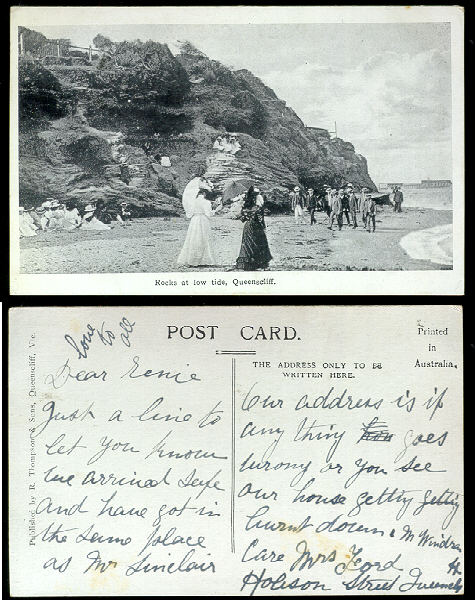 Rocks at low tide, Queenscliff.
POST CARD.
Printed
in
Australia.
THE ADDRESS ONLY TO BE
WRITTEN HERE.
Published by R. Thompson & Sons, Queenscliff, Vic.
love
to
all
Dear Ernie
Just a line to
let you know
we arrived safe
and have got in
the same place
as Mr Sinclair
Our address is if
any thing goes
wrong or you see
our house getty getty
burnt down & M Windra
Care Mrs Ford
Hobson Street Queenscly